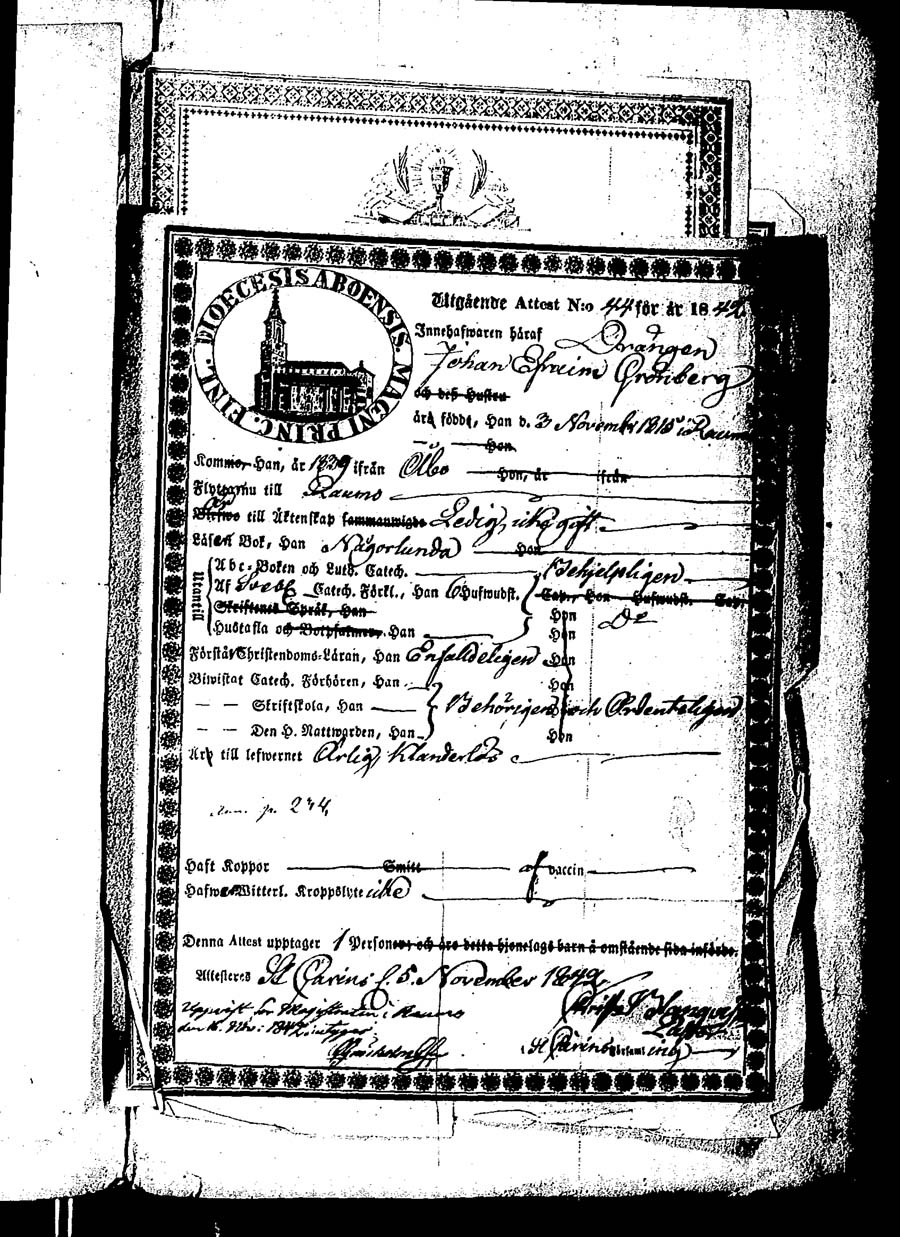 DIOECESIS ABOENSIS. MAGNI PRINC. FINL.
Utgående Attest N:o 44 för år 1842
Innehafwaren häraf Drängen
Johan Efraim Grönberg
och deß Hustru
är född, Han d. 3 November 1815 i Raumo
Hon
Kommo, Han, år 1839 ifrån Åbo Hon, år ifrån
Flytta nu till Raumo
till Äktenskap sammanwigde Ledig, icke gift.
Läser Bok, Han Någorlunda Hon
Utantill
Abc-Boken och Luth. Catech. Behjelpligen
Af Svebel. Catech. Förkl., Han 6 Hufwudst. Cap., Hon Hufwudst. Cap.
Skriftenes Språk, Han Hon Do
Hustafla och Botpsalmer, Han Hon
Förstår Christendoms-Läran, Han Enfaldeligen Hon
Biwistat Catech. Förhören, Han Hon
— — Skriftskola, Han Behörigen och Ordenteligen
— — Den H. Nattwarden, Han Hon
Är till lefwernet Ärlig, Klanderlös
p. 234
Haft Koppor Smitt af vaccin
Hafwer Witterl. Kroppslyte icke
Denna Attest upptager 1 Personer och äro detta hjonelags barn å omstående sida införde.
Attesteres St Carins d. 5. November 1842
Uppvist för Magistraten i Raumo
den 16. Nov. 1842
St Carins